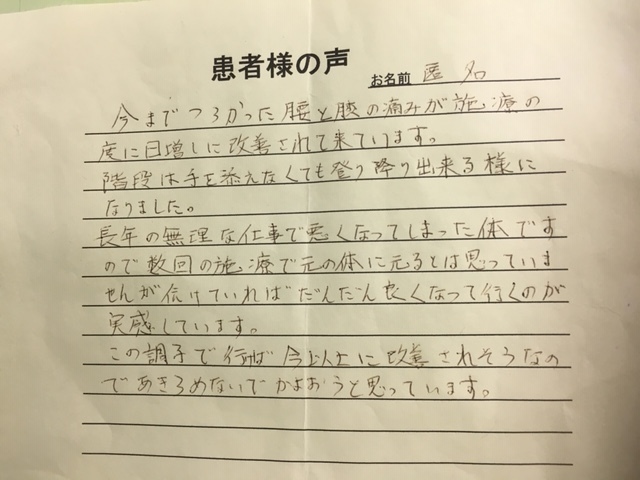 患者様の声
お名前 匿名
今までつらかった腰と膝の痛みが施療の
度に日増しに改善されて来ています。
階段は手を添えなくても登り降り出来る様に
なりました。
長年の無理な仕事で悪くなってしまった体です
ので数回の施療で元の体に元るとは思っていま
せんが続けていればだんだん良くなって行くのが
実感しています。
この調子で行けば今以上に改善されそうなの
であきらめないでかよおうと思っています。